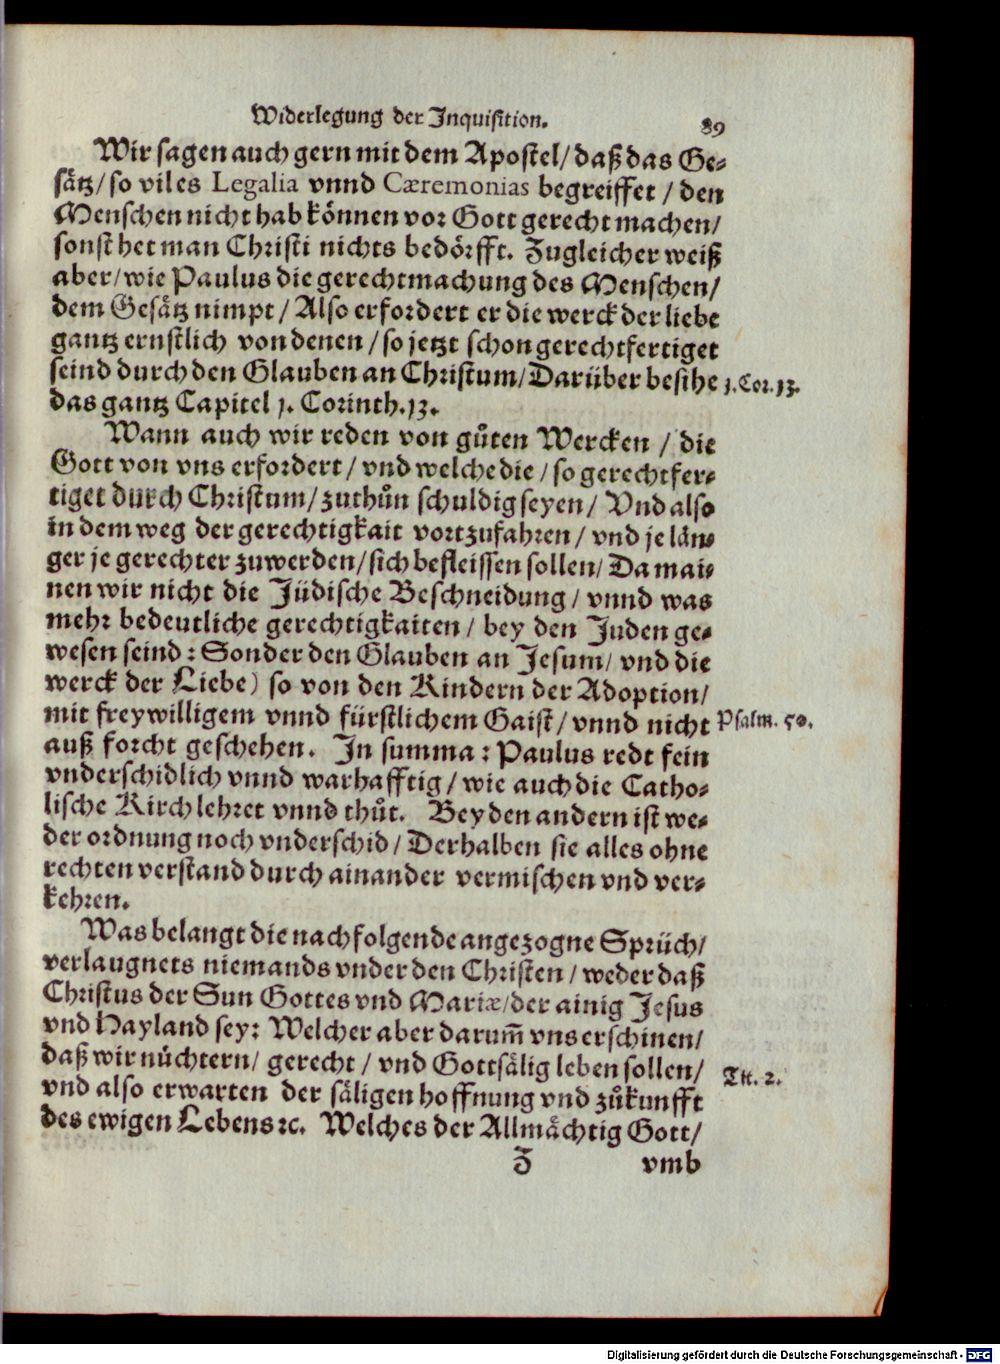 Widerlegung der Inquisition. 89
Wir sagen auch gern mit dem Apostel/ daß das Ge-
sätz/ so vil es Legalia vnnd Cæremonias begreiffet / den
Menschen nicht hab können vor Gott gerecht machen/
sonst het man Christi nichts bedörfft. Zugleicher weiß
aber/ wie Paulus die gerechtmachung des Menschen/
dem Gesätz nimpt / Also erfordert er die werck der liebe
gantz ernstlich von denen / so jetzt schon gerechtfertiget
seind durch den Glauben an Christum/ Darüber besihe 1. Cor. 13.
das gantz Capitel 1. Corinth. 13.
Wann auch wir reden von gůten Wercken / die
Gott von vns erfordert / vnd welche die / so gerechtfer-
tiget durch Christum/ zuthůn schuldig seyen / Vnd also
in dem weg der gerechtigkait vortzufahren / vnd je län-
ger je gerechter zuwerden/ sich befleissen sollen/ Da mai-
nen wir nicht die Jüdische Beschneidung / vnnd was
mehr bedeutliche gerechtigkaiten / bey den Juden ge-
wesen seind : Sonder den Glauben an Jesum/ vnd die
werck der Liebe) so von den Kindern der Adoption/
mit freywilligem vnnd fürstlichem Gaist / vnnd nicht Psalm. 50.
auß forcht geschehen. In summa : Paulus redt fein
vnderschidlich vnnd warhafftig / wie auch die Catho-
lische Kirch lehret vnnd thůt. Bey den andern ist we-
der ordnung noch vnderschid / Derhalben sie alles ohne
rechten verstand durch ainander vermischen vnd ver-
kehren.
Was belangt die nachfolgende angezogne Sprüch/
verlaugnets niemands vnder den Christen / weder daß
Christus der Sun Gottes vnd Mariæ/ der ainig Jesus
vnd Hayland sey: Welcher aber darum̃ vns erschinen/
daß wir nüchtern/ gerecht / vnd Gottsälig leben sollen/ Tit. 2.
vnd also erwarten der säligen hoffnung vnd zůkunfft
des ewigen Lebens ꝛc. Welches der Allmächtig Gott/
Z vmb
Digitalisierung gefördert durch die Deutsche Forschungsgemeinschaft - DFG